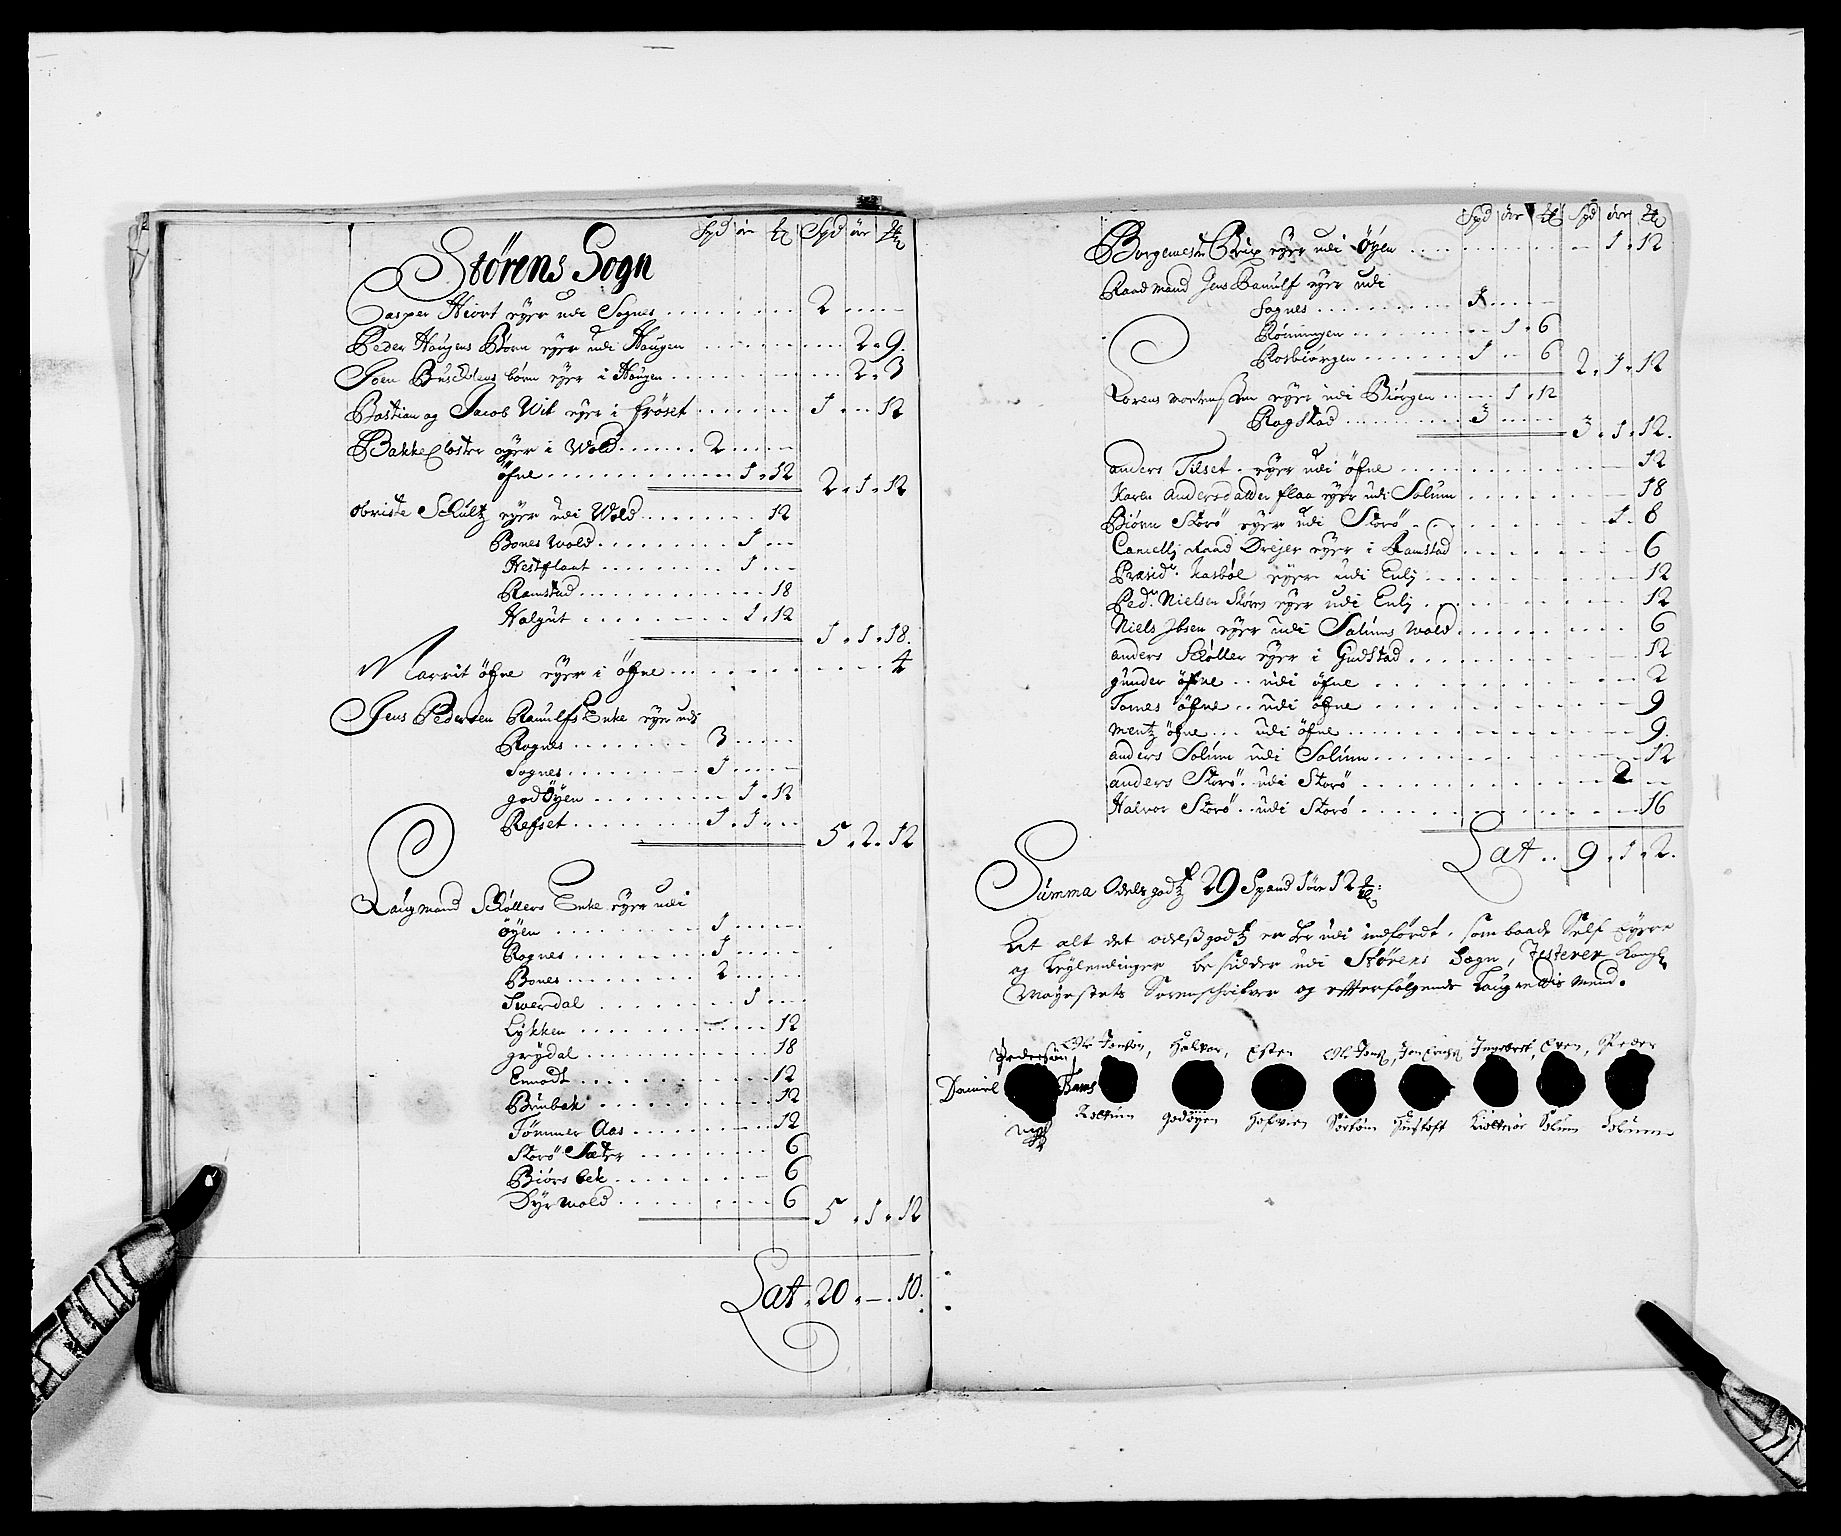 Spd ör # Spd ör #
Störens Sogn
Casper Hiort eyer udi Sognes . . . 2 - -
Peder Haugens Börn eyer udi Haugen . . . 2 - 9.
Joen Buschlens börn eyer i Haugen . . . 2 - 3
Bastian og Jacob Wit eyer i fröset . . . 1 - - 12
Bakke Closter eyer i Wold . . . 2 - -
öfne . . . 1 - 12 2 - 1 - 12
obriste Schultz eyer udi Wold . . . 12
Bones Wold . . . 1 - -
Hestflaat . . . 1 - -
Ramstad . . . 18
Halgut . . . 1 - 12 1 - 1 - 18.
Marrit öfne eyer i öfne . . . 4
Jens Pedersen Ramulfs Enke eyer udi
Rognes . . . 3 - -
Sognes . . . 1 - -
godöyen . . . 1 - 12
Refset . . . 1 - 1 - - 5 - 2 - 12
Laugmand Schöllers Enke eyer udi
öyen . . . 1 - -
Rognes . . . 1 - -
Bones . . . 2 - -
Swerdal . . . 1 - -
Lykken . . . 12
grydal . . . 18
Ennodt . . . 12
Brubak . . . 12
Tömmer Aas . . . 12
Storö Sæter . . . 6
Biörsbek . . . 6
Dyrwold . . . 6 5 - 1 - 12
Lat . 20 - - 10.
Spd ör # Spd ör #
Borgemester Brix eyer udi öyen . . . 1 - 12
Raadmand Jens Ramulf eyer udi
Sognes . . . 1 - -
Röningen . . . 1 - 6
Rosbiörgen . . . 1 - 6 2 - 1 - 12
Lorens Mortenssen eyer udi Biörgen . . . 1 - 12
Rogstad . . . 3 - - 3 - 1 - 12.
anders Tilset . eyer udi öfne . . . 12
Karen Andersdatter flaa eyer udi Solum . . . 18
Biörn Storö eyer udi Storö . . . 1 - 8
Cancellj Raad Dreyer eyer i Ramstad . . . 6
Præsid. Kasböl eyer udi Enlj . . . 12
Ped. Nielsen Stören eyer udi Enlj . . . 12
Niels Jbsen eyer udi Solums Wold . . . 6
anders Schöller eyer i Gudstad . . . 12
gunder öfne . . udi öfne . . . 2
Tomes öfne . . udi öfne . . . 9
Mentz öfne . . . udi öfne . . . 9.
anders Solum udi Solum . . . 12
anders Storö . udi Storö . . . 2 - -
Halvor Storö . . udi Storö . . . 16
Lat . . 9 - 1 - 2.
Summa Odelsgodtz 29 Spand 1 ör 12 #:
At alt det odelßgodtz er her udi indfördt, som baade Self Eyere
og Leylendinger besidder udi Störens Sogn, Testerer Kongl.
Mayestets Sorenschriffver og efterfölgende Laugrettis Mend.
Pedersön, Ole Jonsön, Halvor, Esten Ole Jons, Jon Erichs, Ingebret, Even, Peder
Daniel Bams
Volum godöyen Hofwin Sörhöm Hustoft Kioltröe Solum Solum